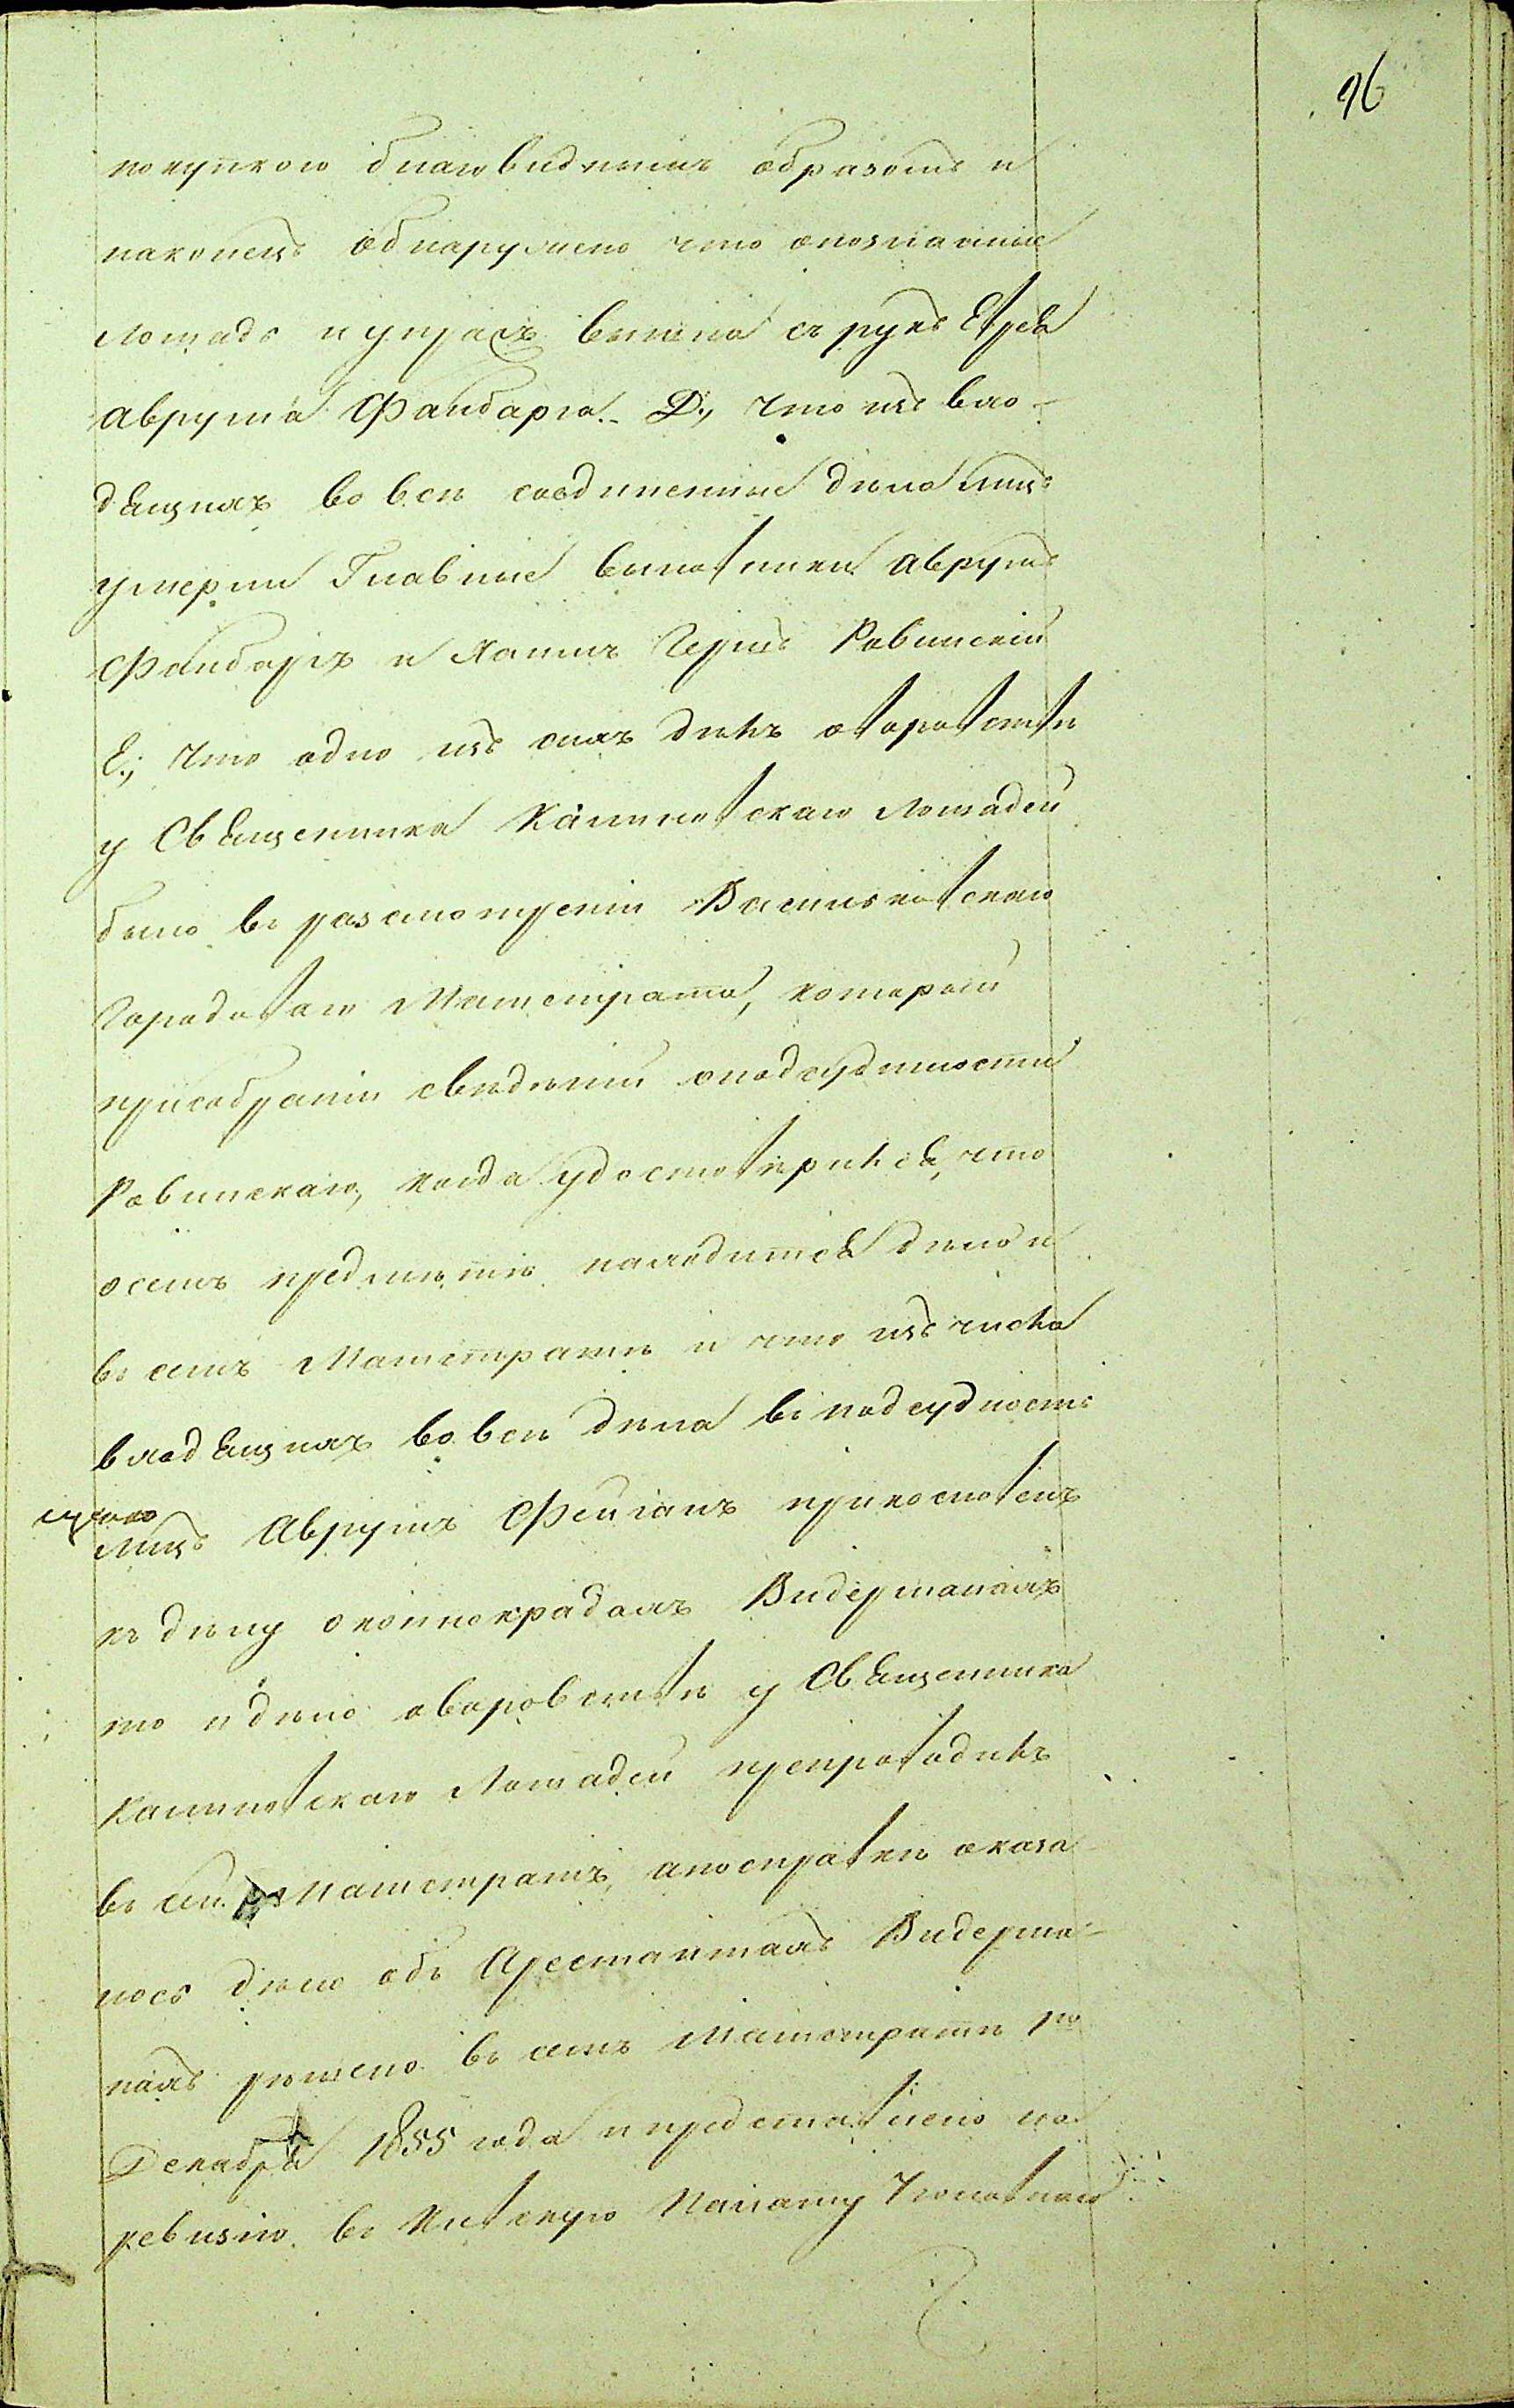 96
покупкою благовиднымъ образомъ и
наконецъ обнаружено что опознанные
лошадь и упряжъ вышла съ рукъ Еврея
Аврума Файбарга. Д., что изъ вхо-
дящихъ во всѣ соединенные дѣла лицъ
умерли Главные виновники Аврумъ
Файбаргъ и Хаимъ Герцъ Ровинскій
Е., что одно изъ сихъ дѣлъ о воровствѣ
у Священника Калиновскаго лошадей
было въ разсмотреніи Васильковскаго
Городоваго Магистрата, который
присобраніи свѣдѣній оподсудимости
Ровинскаго, когда удостовѣрился, что
осемъ предмѣтѣ находится дѣло и
въ семъ Магистратѣ и что изъ числа
входящихъ во всѣ дѣла въ подсудность
лицъ Аврумъ Фейганъ прикосновенъ
къ дѣлу околокрадахъ Видерманахъ
то и дѣло оворовствѣ у Священника
Калиновскаго Лошадей препроводилъ
въ сей Магистратъ, апосправкѣ оказа-
лось дѣло объ Арестантахъ Видерма-
нахъ рѣшено въ семъ Магистратѣ 1го
Декабря 1855 года и представлено на
ревизію въ Кіевскую Палату Уголовнаго